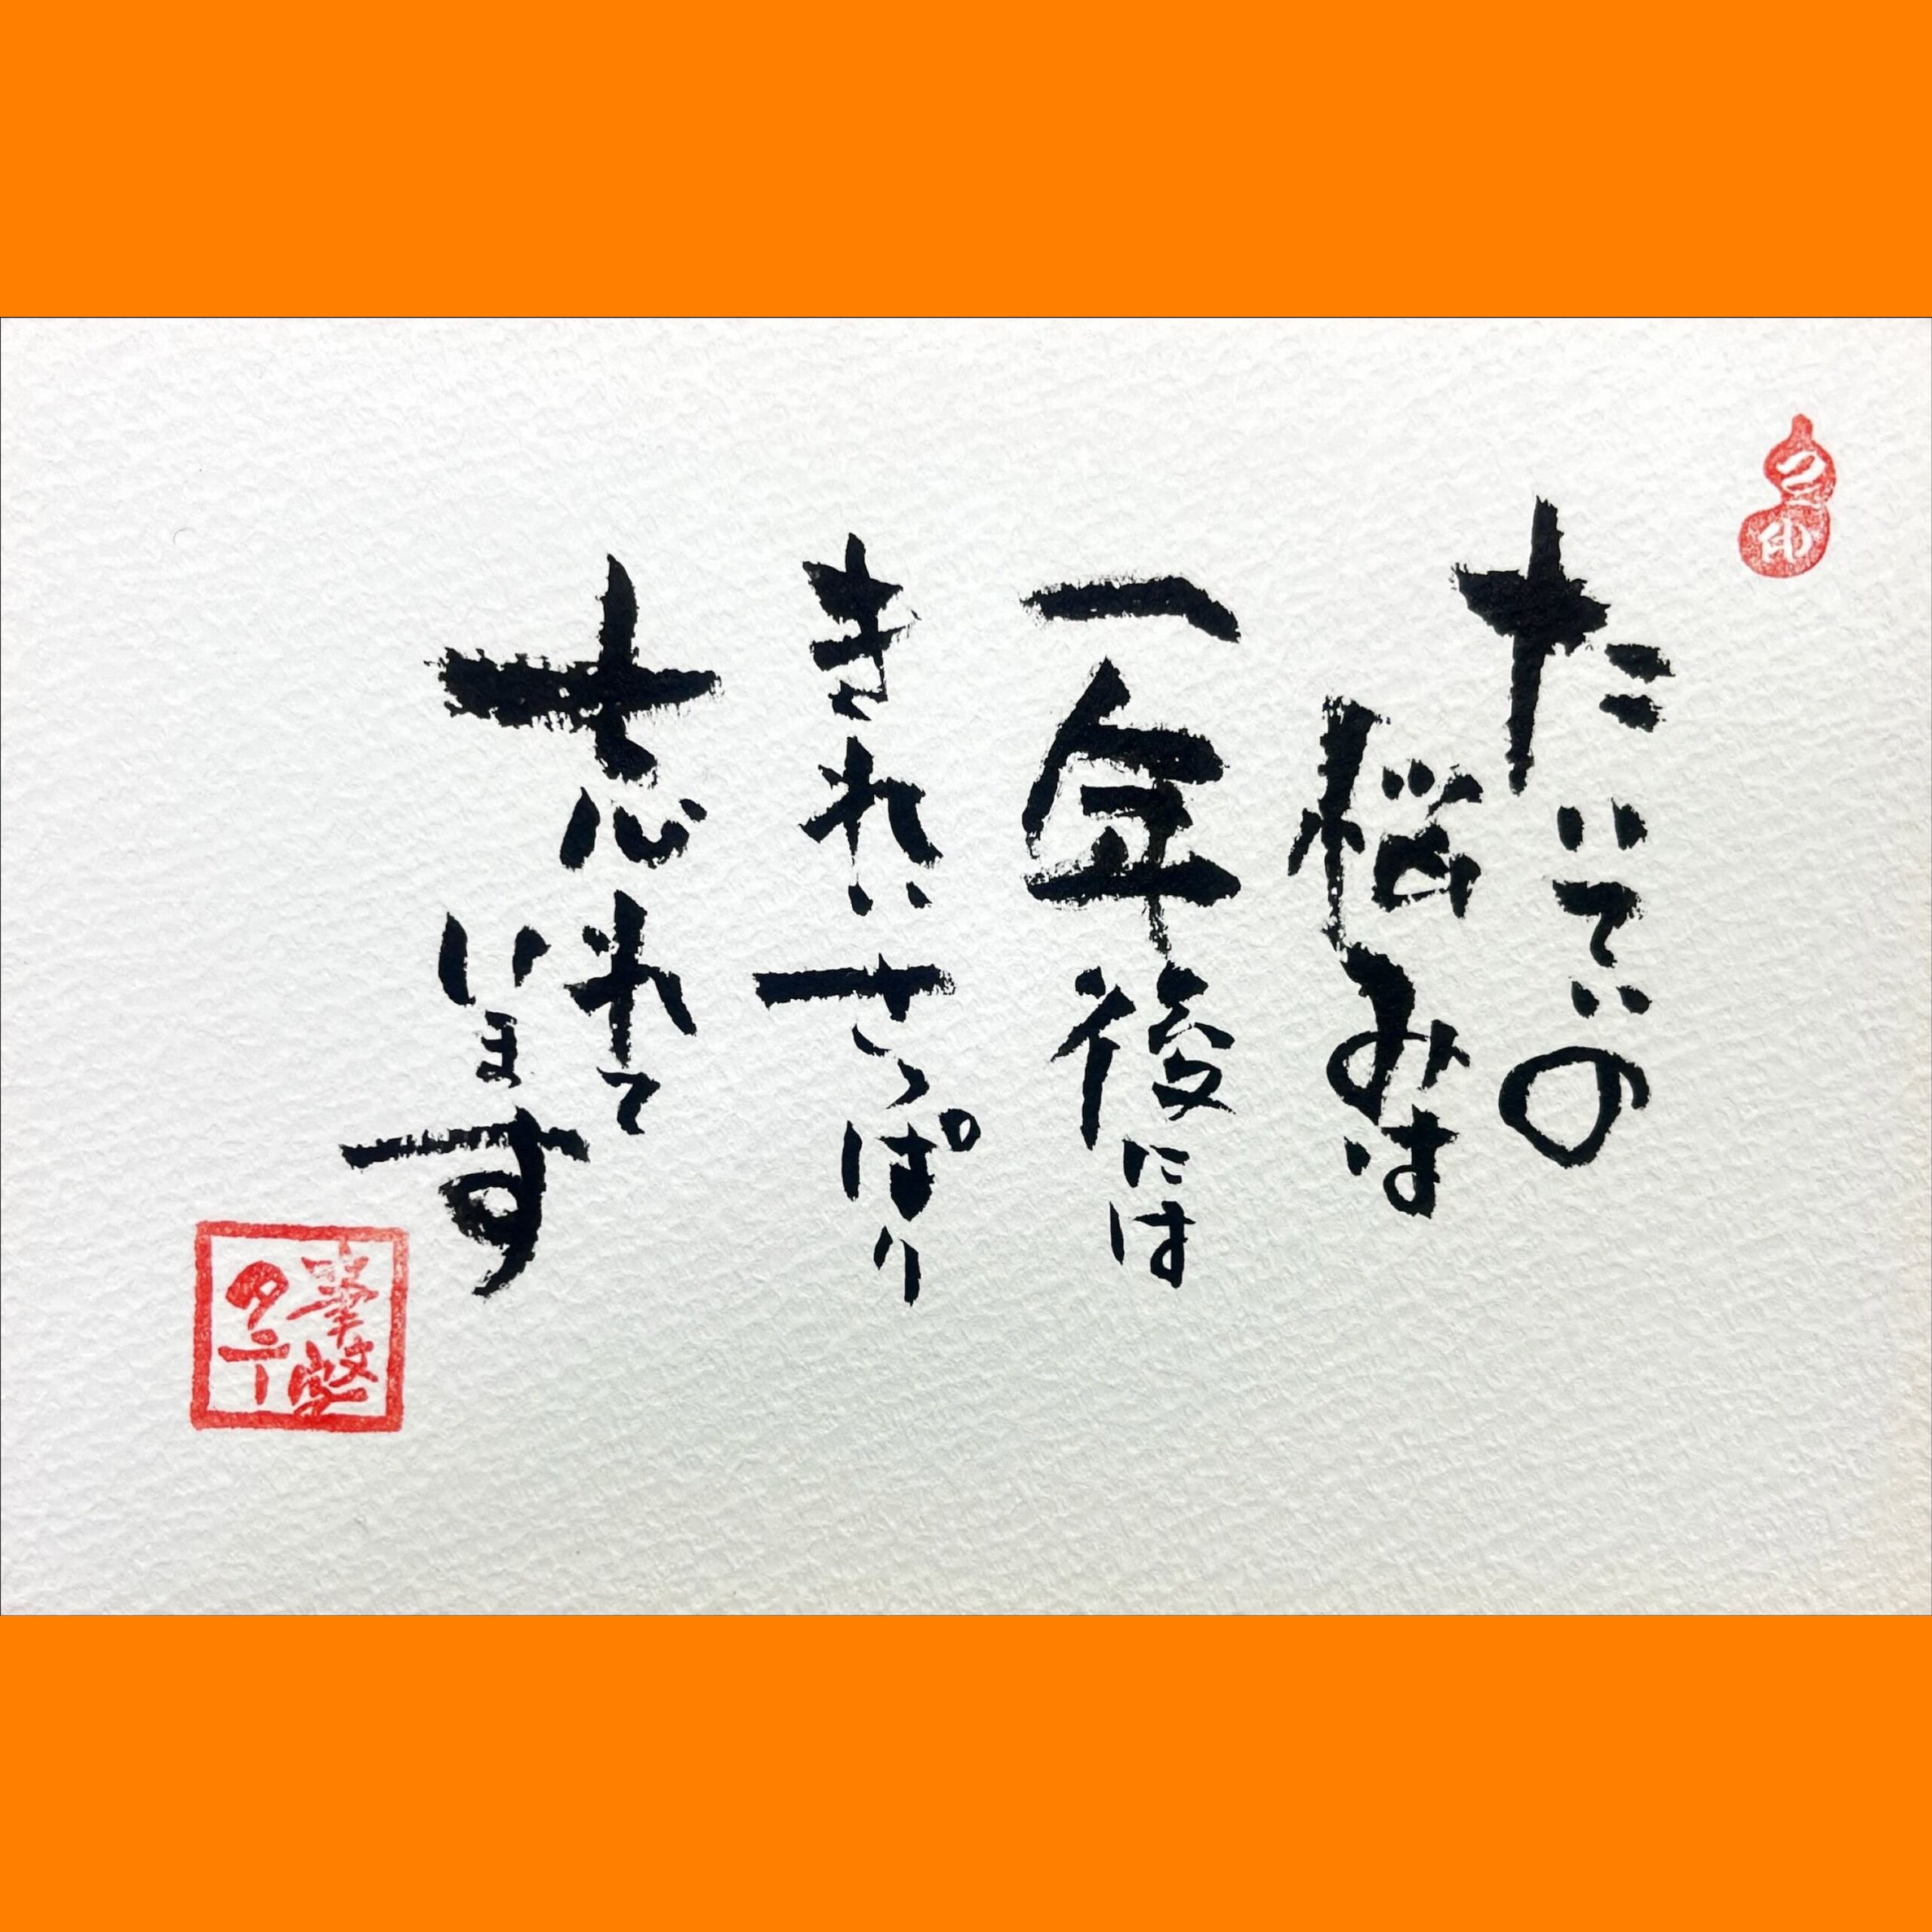 たいていの
悩みは
一年後には
きれいさっぱり
忘れて
います